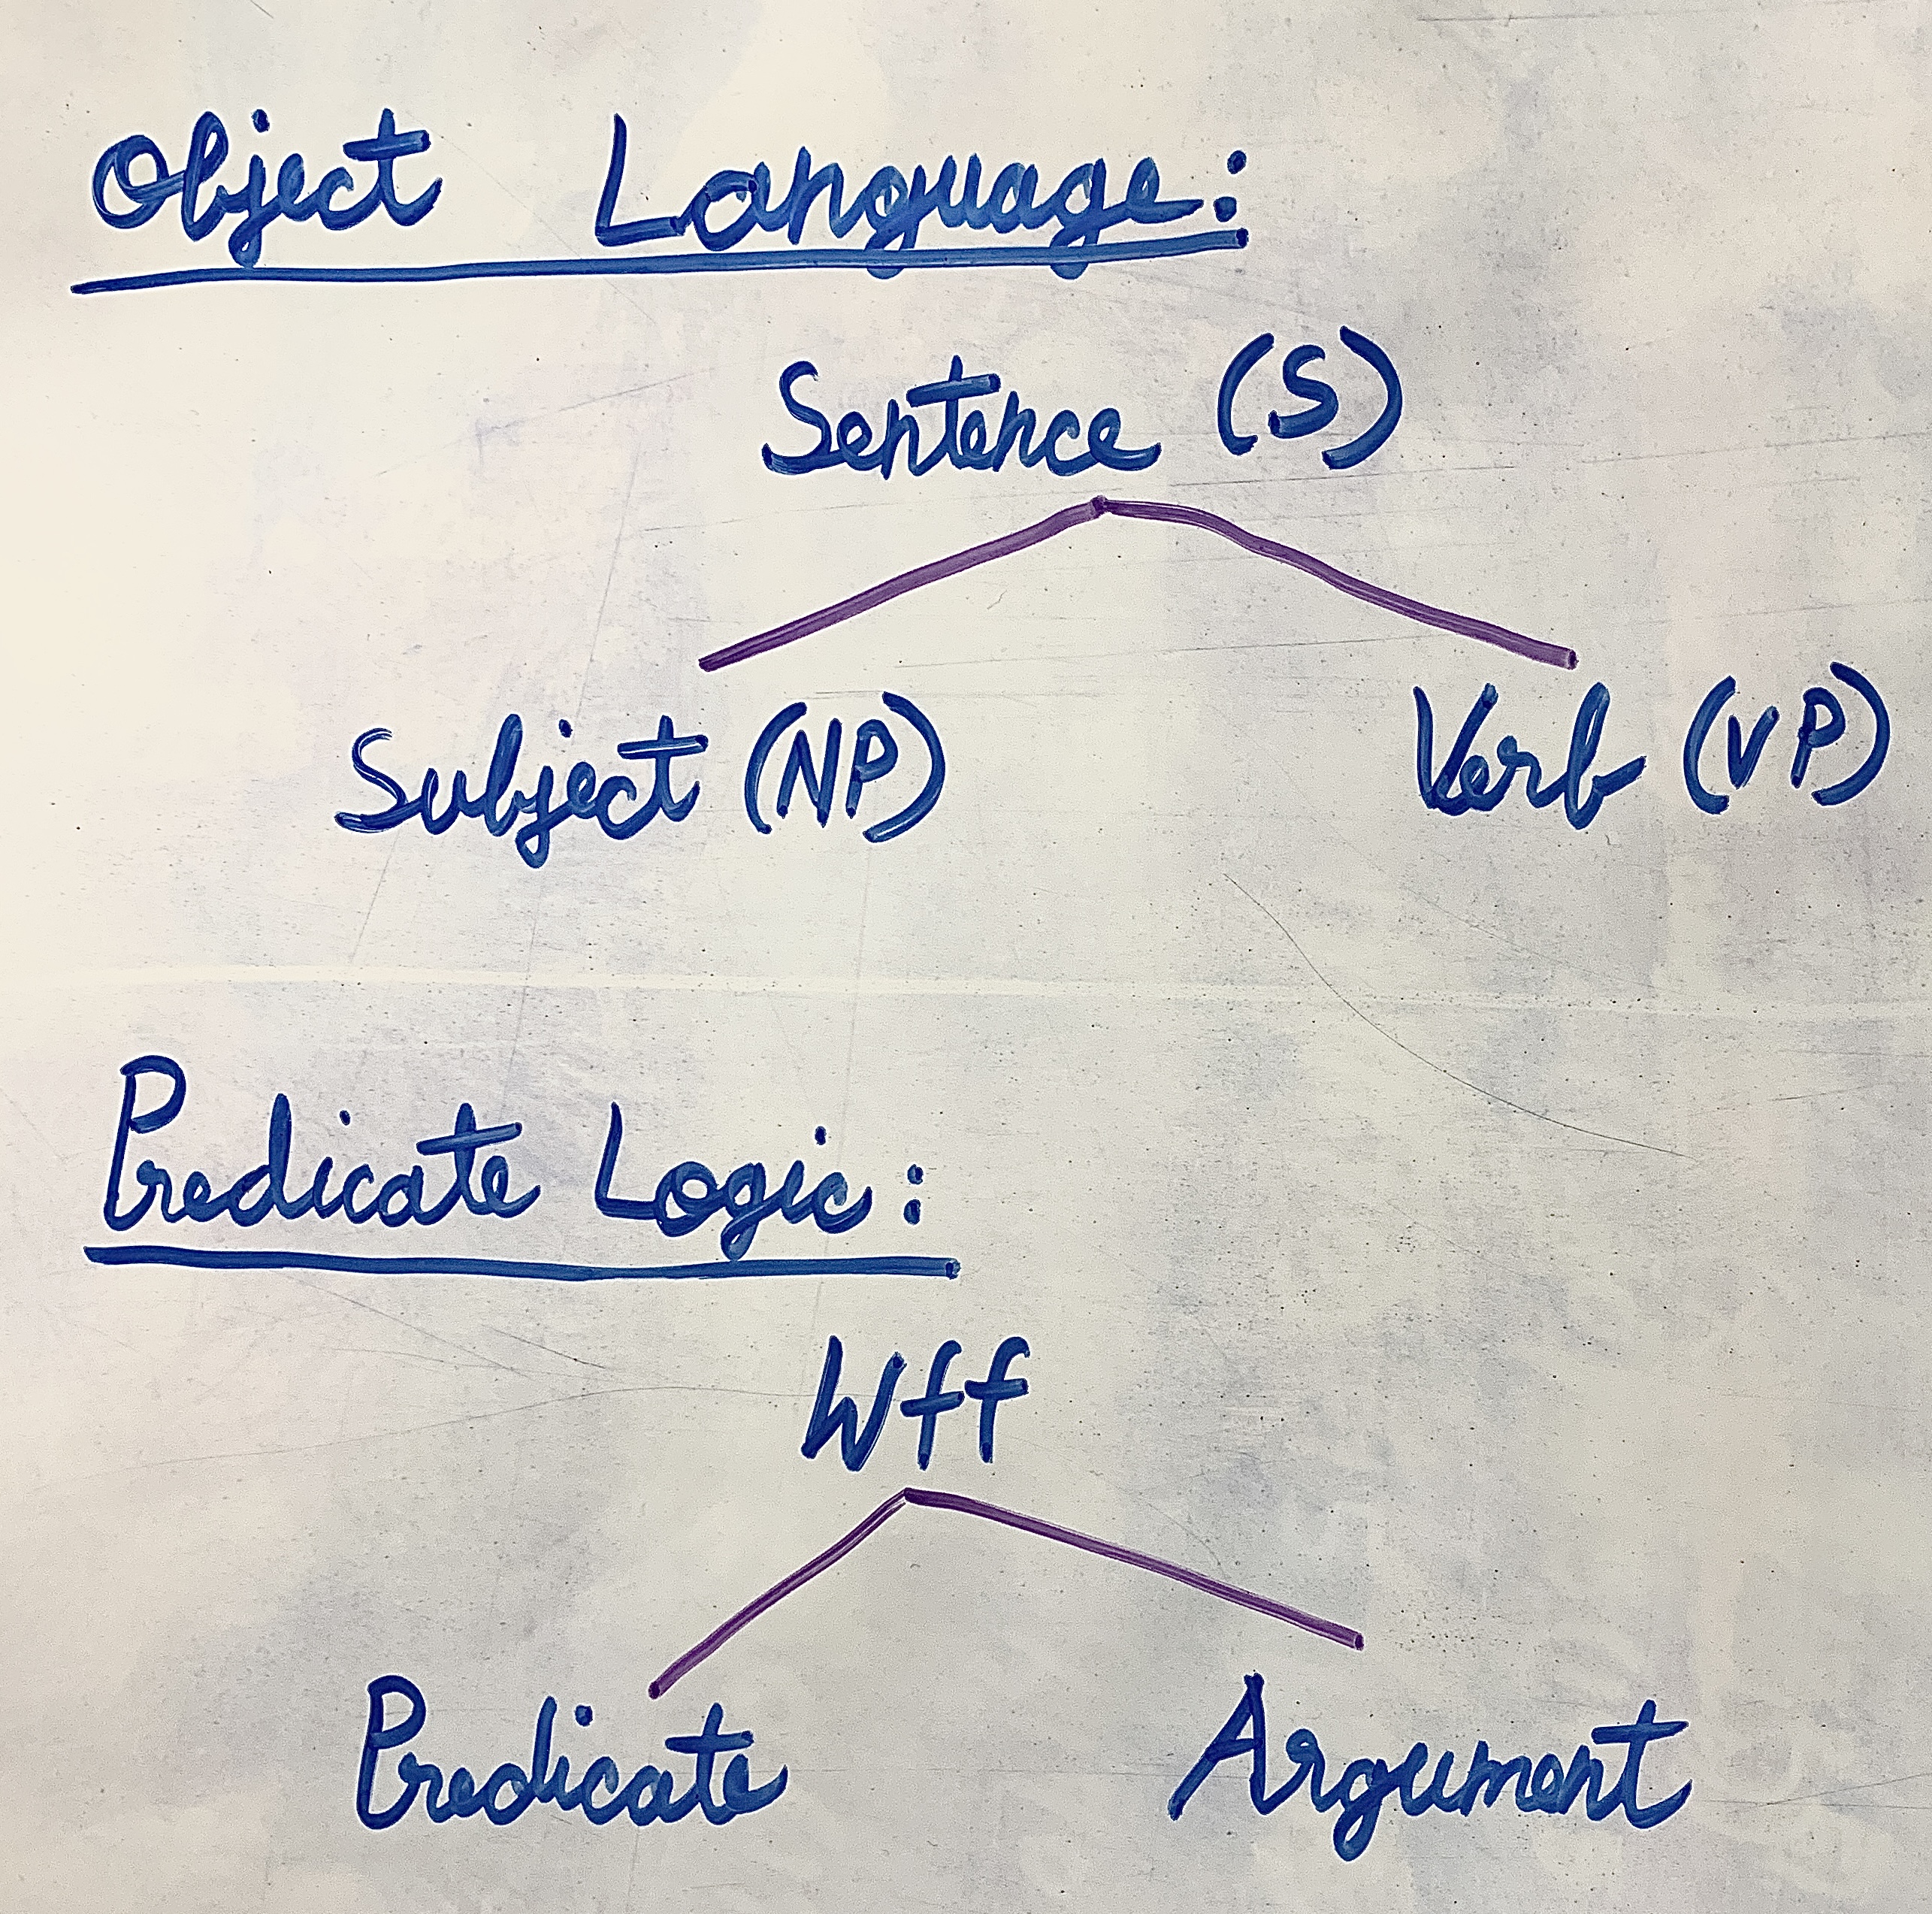 Object Language:
Sentence (S)
Subject (NP) Verb (VP)
Predicate Logic:
Wff
Predicate Argument